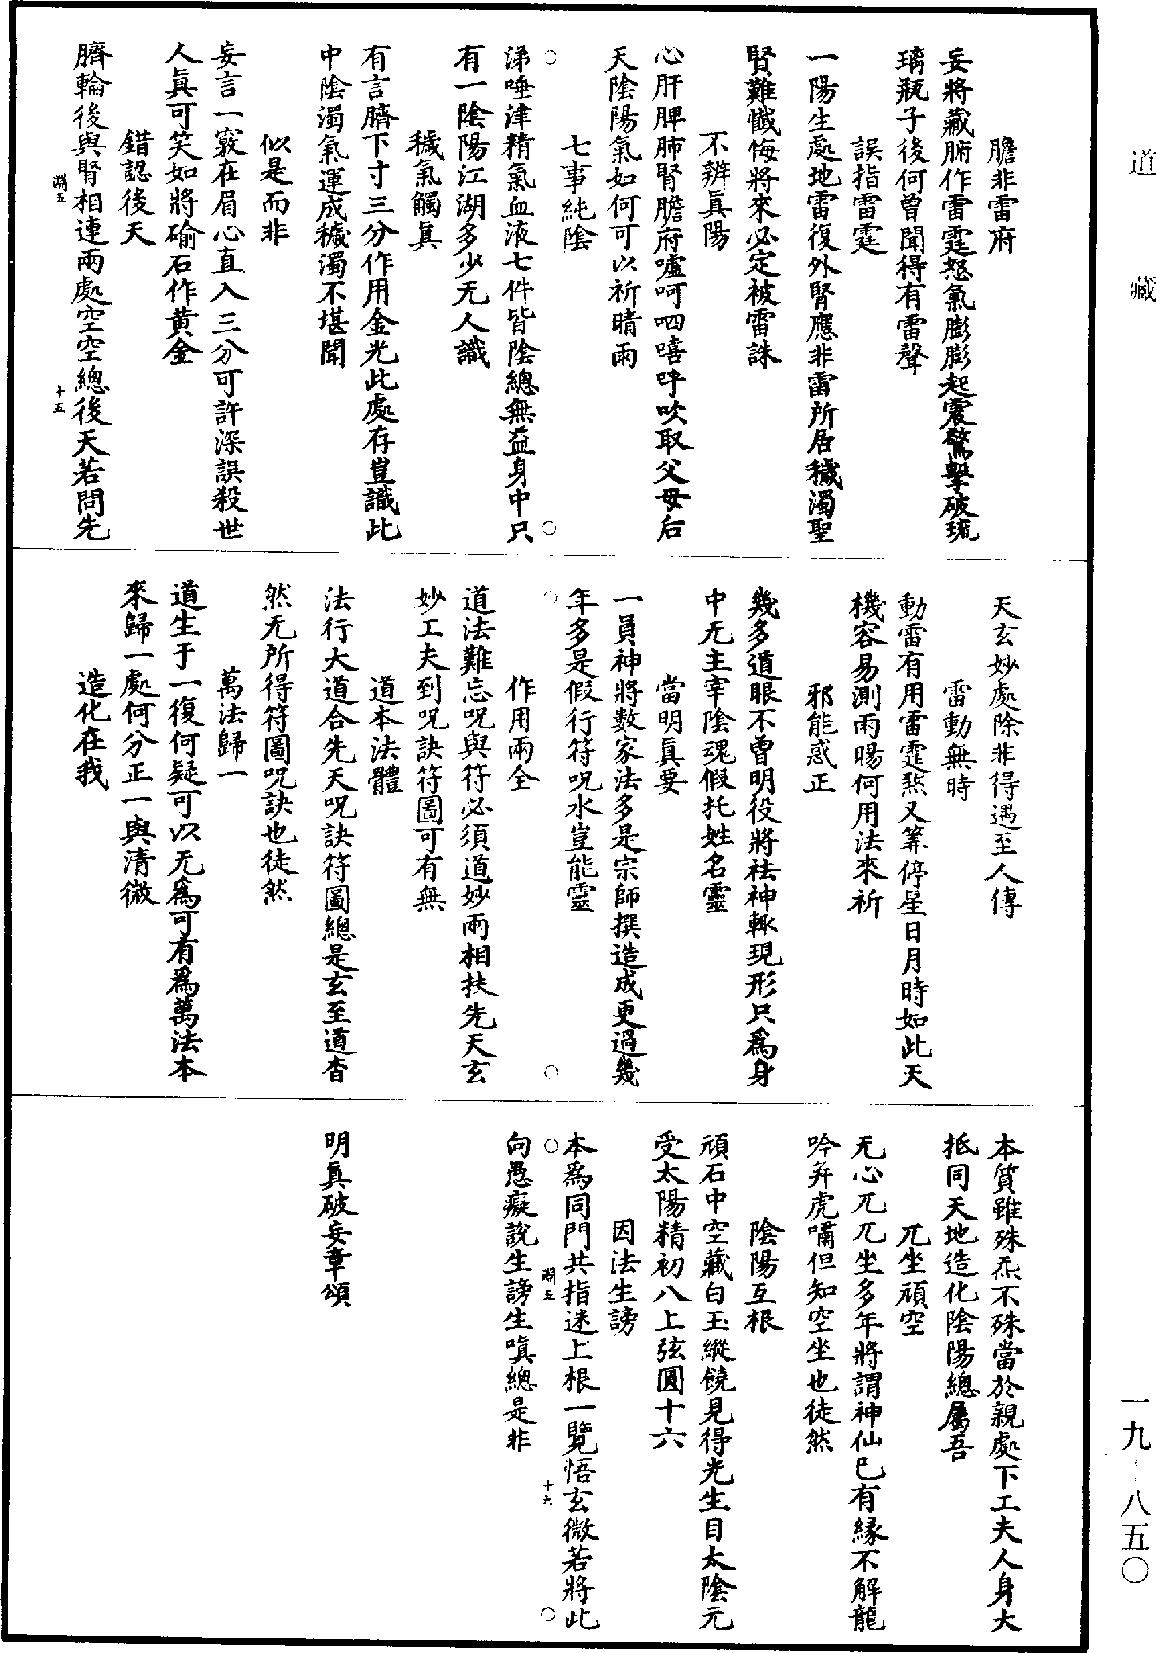 道藏
膽非雷府
妄將藏腑作雷霆怒氣膨膨起震驚擊破琉
璃瓶子後何曾聞得有雷聲
誤指雷霆
一陽生處地雷復外腎應非雷所居穢濁聖
賢難懺悔將來必定被雷誅
不辨真陽
心肝脾肺腎膽府噓呵呬嘻呼吹取父母后
天陰陽氣如何可以祈晴雨
七事純陰
涕唾津精氣血液七件皆陰總無益身中只
有一陰陽江湖多少无人識
穢氣觸真
有言臍下寸三分作用金光此處存豈識此
中陰濁氣運成穢濁不堪聞
似是而非
妄言一竅在眉心直入三分可許深誤殺世
人真可笑如將碖石作黃金
錯認後天
臍輪後與腎相連兩處空空總後天若問先
天玄妙處除非得遇至人傳
雷動無時
動雷有用雷霆煞又筭停星日月時如此天
機容易測雨暘何用法來祈
邪能惑正
幾多道眼不曾明役將祛神輙現形只爲身
中无主宰陰魂假托姓名靈
當明真要
一員神將数家法多是宗師撰造成更過幾
年多是假行符呪水豈能靈
作用兩全
道法難忘呪與符必須道妙兩相扶先天玄
妙工夫到呪訣符圖可有無
道本法體
法行大道合先天呪訣符圖總是玄至道杳
然无所得符圖呪訣也徒然
萬法歸一
道生于一復何疑可以无爲可有爲萬法本
來歸一處何分正一與清微
造化在我
本質雖殊炁不殊當於親處下工夫人身大
抵同天地造化陰陽總屬吾
兀坐頑空
无心兀兀坐多年將謂神仙已有緣不解龍
吟并虎嘯但知空坐也徒然
陰陽互根
頑石中空藏白玉縱饒見得光生目太陰元
受太陽精初八上弦圓十六
因法生謗
本爲同門共指迷上根一覽悟玄微若將此
向愚癡說生謗生嗔總是非
明真破妄章頌
淵五
十五
淵五
十六
一九-八五〇